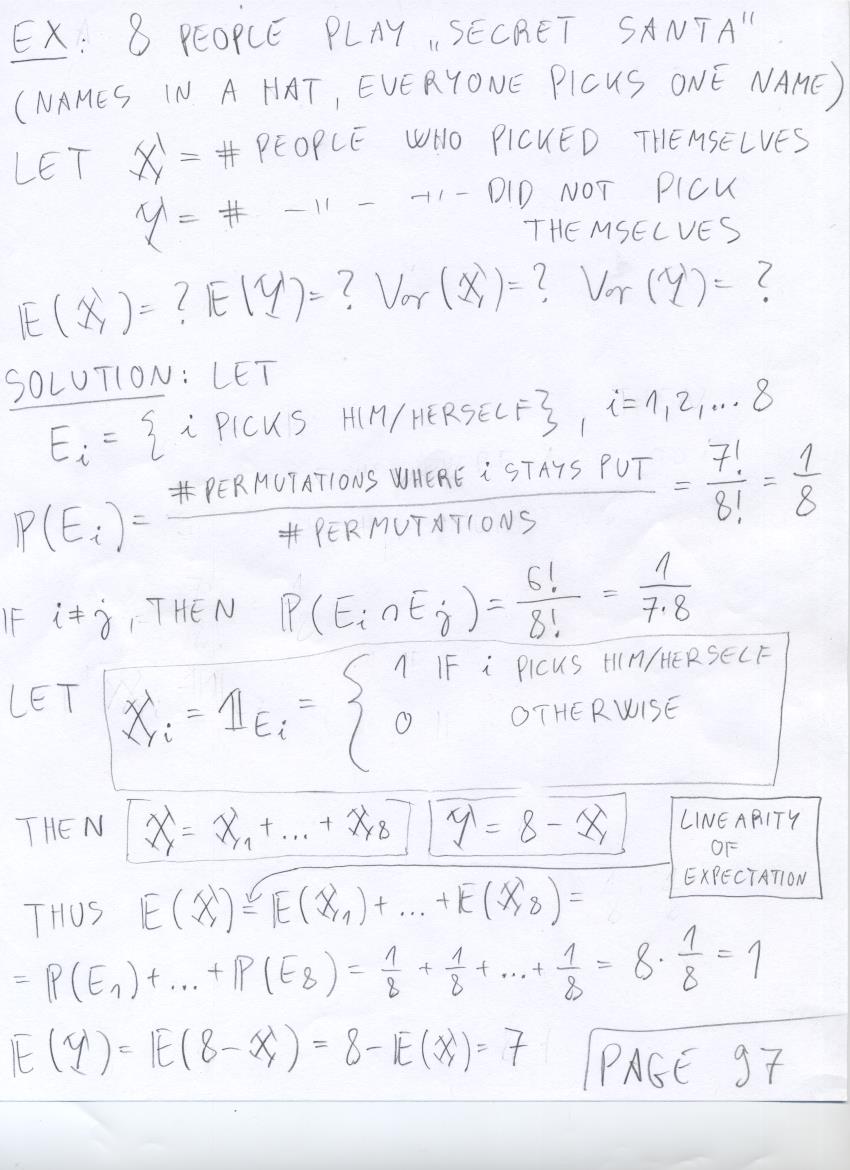 EX: 8 PEOPLE PLAY „SECRET SANTA"
(NAMES IN A HAT, EVERYONE PICKS ONE NAME)
LET X = # PEOPLE WHO PICKED THEMSELVES
Y = # —"— —"— DID NOT PICK
THEMSELVES
E(X) = ? E(Y) = ? Var(X) = ? Var(Y) = ?
SOLUTION: LET
E_i = { i PICKS HIM/HERSELF }, i=1,2,... 8
P(E_i) = # PERMUTATIONS WHERE i STAYS PUT / # PERMUTATIONS = 7!/8! = 1/8
IF i≠j, THEN P(E_i ∩ E_j) = 6!/8! = 1/(7·8)
LET X_i = 𝟙_{E_i} = { 1 IF i PICKS HIM/HERSELF
0 OTHERWISE
THEN X = X_1 + ... + X_8 Y = 8 - X
LINEARITY
OF
EXPECTATION
THUS E(X) = E(X_1) + ... + E(X_8) =
= P(E_1) + ... + P(E_8) = 1/8 + 1/8 + ... + 1/8 = 8 · 1/8 = 1
E(Y) = E(8 - X) = 8 - E(X) = 7
PAGE 97